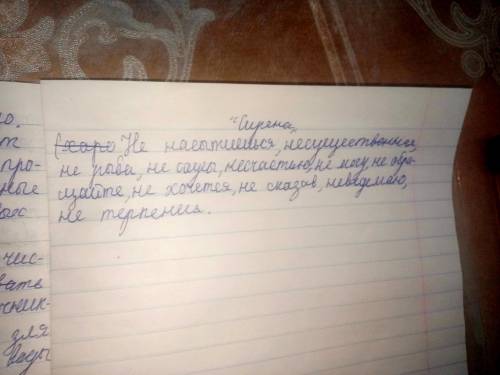 "Сирена„
Не насытишься, несущественна,
не рыба, не сады, несчастью, не могу, не обра-
щайте, не хочется, не сказав, неведомаю,
не терпения.
ю.
т
про-
ные
вых
чис-
вать
ник-
для
воды